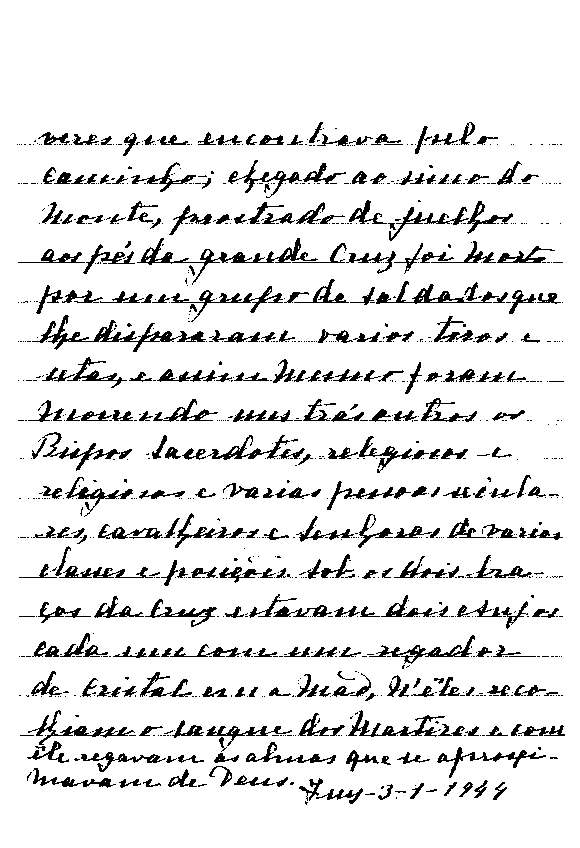 veres que encontrava pelo
caminho; chegado ao simo do
Monte, prostrado de juelhos
aos pés da grande Cruz foi morto
por um grupo de soldados que
lhe dispararam varios tiros e
setas, e assim mesmo foram
morrendo uns trás outros os
Bispos Sacerdotes, religiosos e
religiosas e varias pessoas seicula-
res, cavalheiros e senhoras de varias
classes e posições. Sob os dois bra-
ços da Cruz estavam dois Anjos
cada um com um regador
de cristal em a mão, N'êles reco-
lhiam o sangue dos Martires e com
êle regavam as almas que se aproxi-
mavam de Deus.
Tuy-3-1-1944